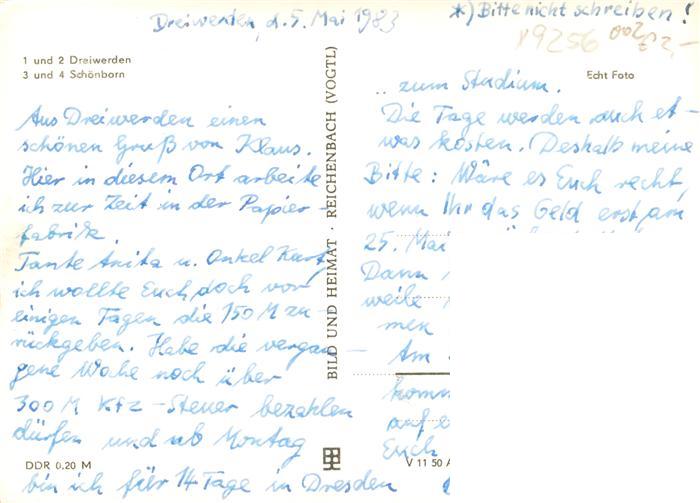 Dreiwerden, d. 5. Mai 1983
*) Bitte nicht schreiben!
1 und 2 Dreiwerden
3 und 4 Schönborn
Aus Dreiwerden einen
schönen Gruß von Klaus.
Hier in diesem Ort arbeite
ich zur Zeit in der Papier-
fabrik.
Tante Anita u. Onkel Kurt,
ich wollte Euch doch vor
einigen Tagen die 150 M zu-
rückgeben. Habe die vergan-
gene Woche noch über
300 M Kfz-Steuer bezahlen
dürfen und ab Montag
DDR 0.20 M
bin ich für 14 Tage in Dresden
BILD UND HEIMAT · REICHENBACH (VOGTL)
Echt Foto
.. zum Studium.
Die Tage werden auch et-
was kosten. Deshalb meine
Bitte: Wäre es Euch recht,
wenn Ihr das Geld erst am
25. Mai
Dann
weile
men
Am
komm
auf
Euch
V 11 50